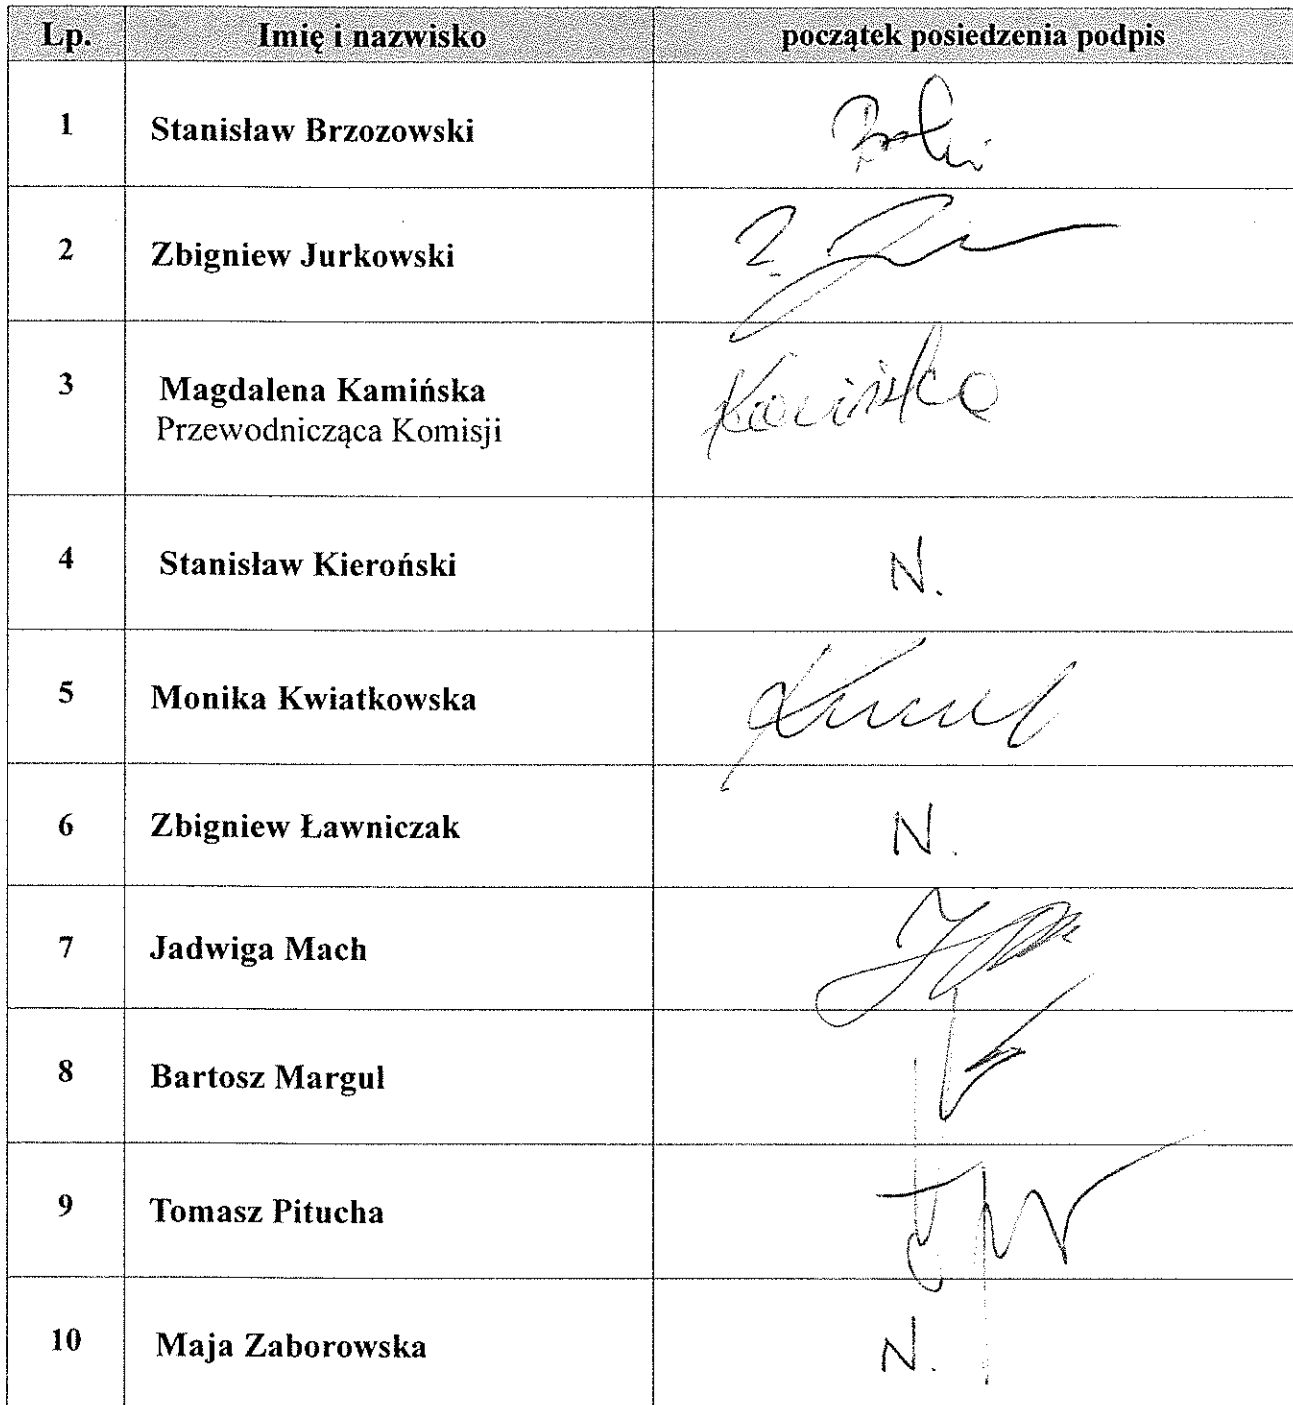 Lp. Imię i nazwisko początek posiedzenia podpis
1 Stanisław Brzozowski
2 Zbigniew Jurkowski
3 Magdalena Kamińska
Przewodnicząca Komisji
4 Stanisław Kieroński N.
5 Monika Kwiatkowska
6 Zbigniew Ławniczak N.
7 Jadwiga Mach
8 Bartosz Margul
9 Tomasz Pitucha
10 Maja Zaborowska N.